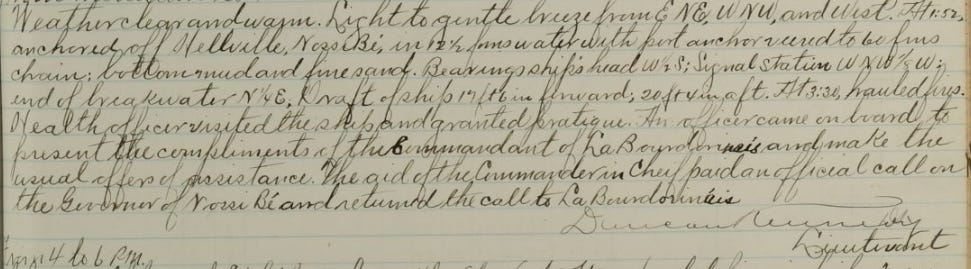 Weather clear and warm. Light to gentle breeze from E NE, W NW, and West. At 1:52,
anchored off Hellville, Nossi Bé, in 12½ fms water with port anchor veered to 60 fms
chain; bottom mud and fine sand. Bearings ship's head W½S; Signal Station W N W ½ W;
end of breakwater N¼E, Draft of ship 17 ft 6 in forward; 20 ft 4 in aft. At 3:30, hauled fires.
Health officer visited the ship and granted pratique. An officer came on board to
present the compliments of the Commandant of La Bourdonnais and make the
usual offers of assistance. The aid of the Commander in Cheif paid an official call on
the Governor of Nossi Bé and returned the call to La Bourdonnais
Duncan Kennedy
Lieutenant
4 to 6 P.M.